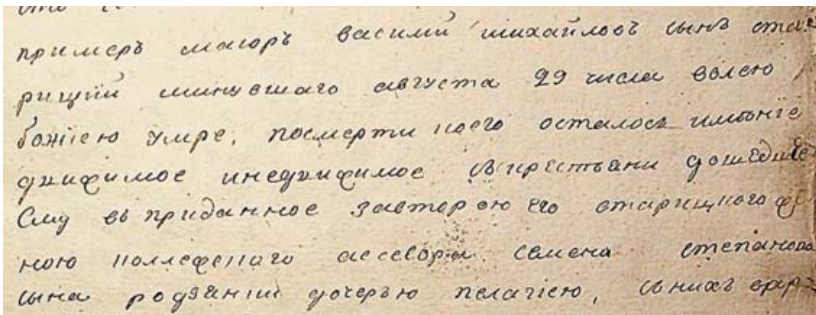 примеръ маиоръ василий михайловъ сынъ ста
рицкий минувшаго августа 29 числа волею
божиею умре, посмерти коего осталось имѣние
движимое инедвижимое скрестьяни дошедшие
Ему въ приданное завторою его старицкого же
ною коллежскаго асесора семена степанова
сына родзянки дочерью пелагиею, снихъ